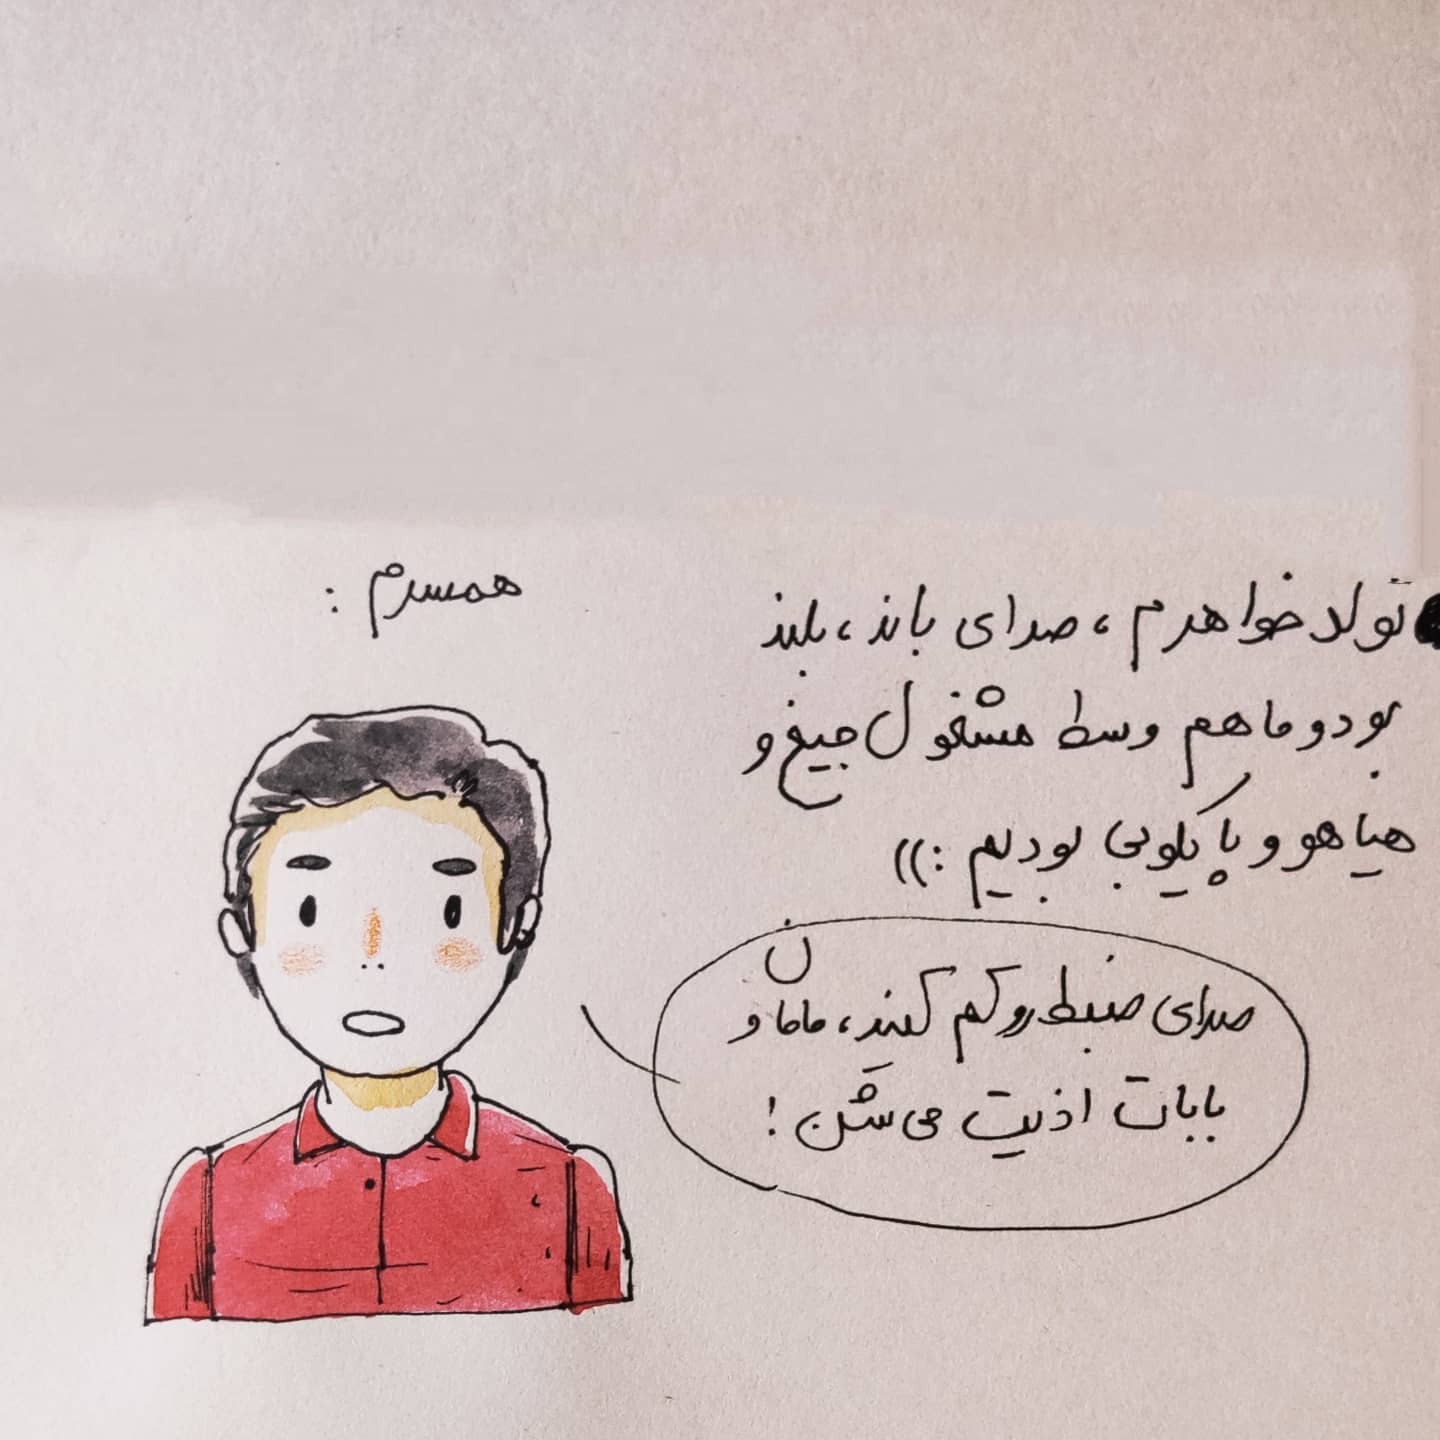 تولد خواهرم، صدای باند، بلند
بود و ما هم وسط مشغول جیغ و
هیاهو و پایکوبی بودیم :))
همسرم :
صدای ضبط رو کم کنید، مامان و
بابات اذیت می‌شن!